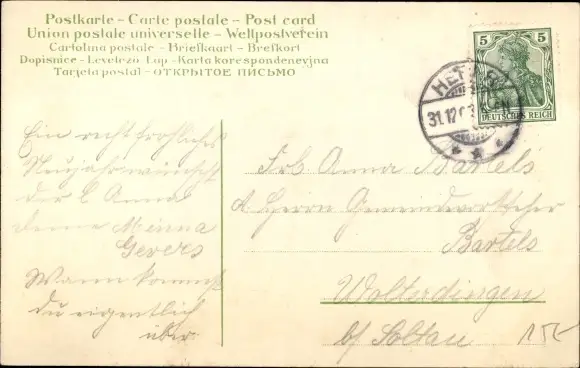 Postkarte – Carte postale – Post card
Union postale universelle – Weltpostverein
Cartolina postale – Briefkaart – Brefkort
Dopisnice – Levelező Lap – Karta korespondencyjna
Tarjeta postal – ОТКРЫТОЕ ПИСЬМО
5 5
DEUTSCHES REICH
31.12.
Ein recht fröhliches
Neujahr wünscht
der l. Anna
deine Minna
Gevers
Wann kommst
du eigentlich
über
Frl. Anna Bartels
Herrn Gemeindevorsteher
Bartels
Wolterdingen
b/ Soltau